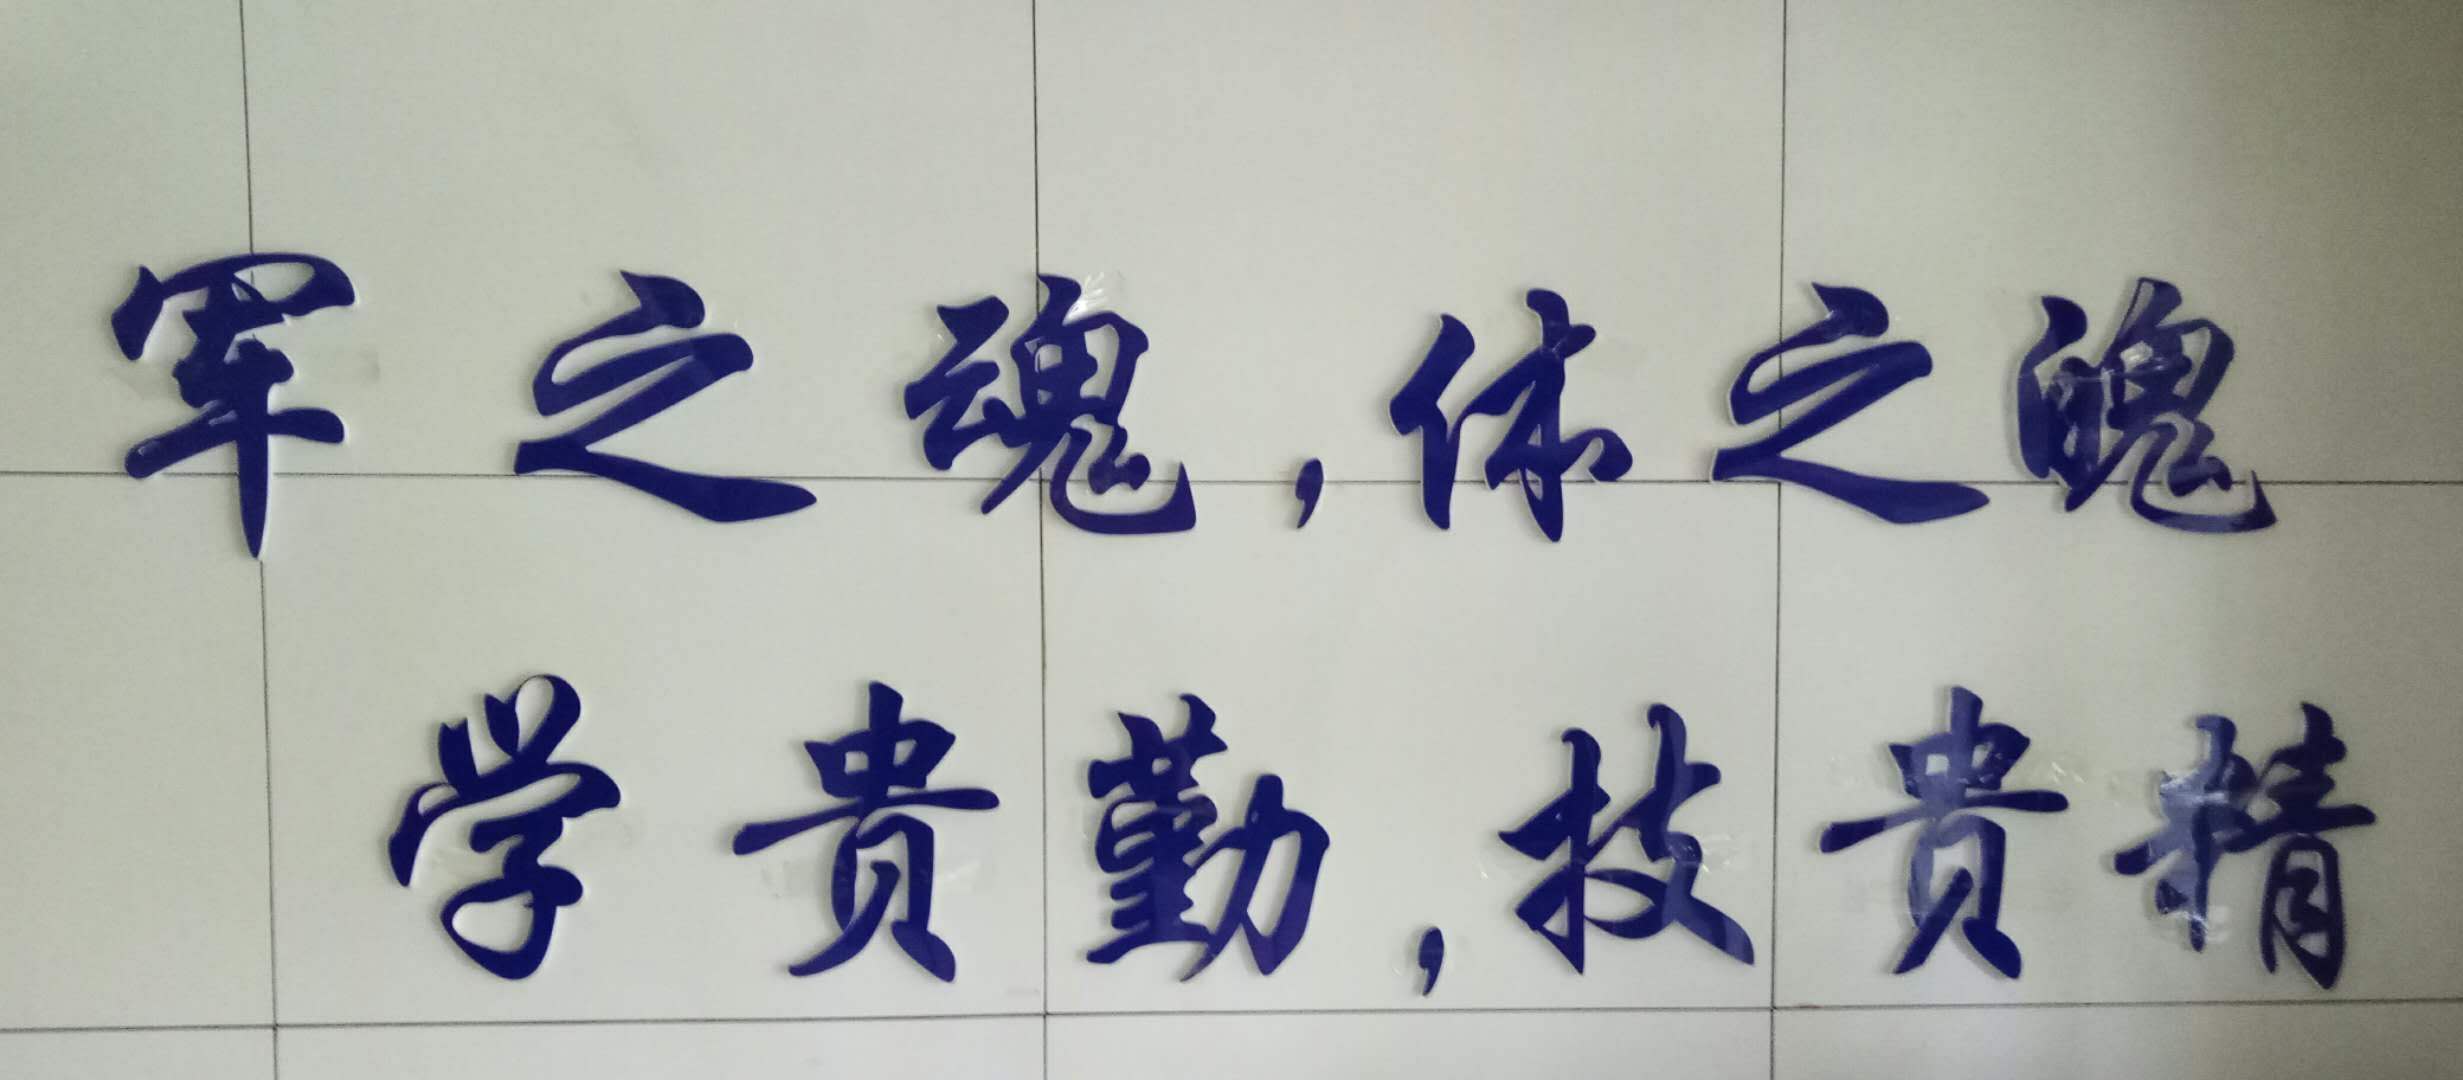 军之魂,体之魄
学贵勤,技贵精